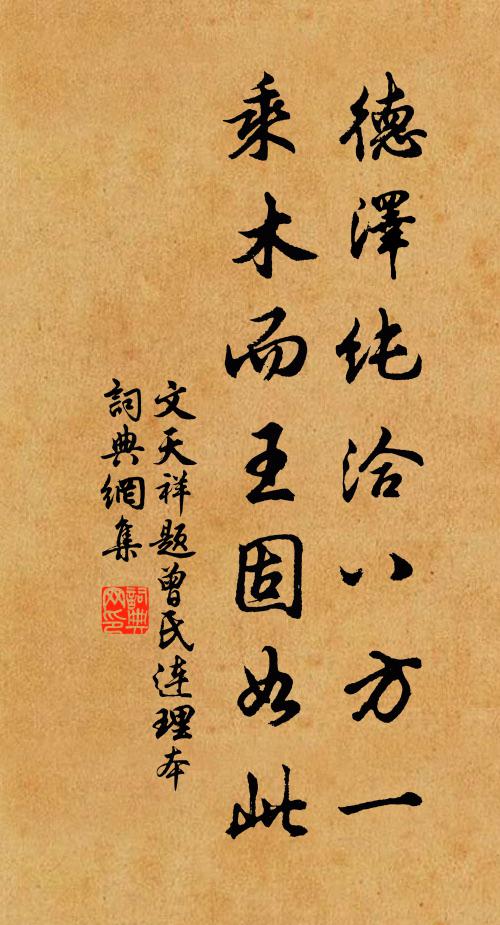 德澤纯洽八方一
乘木而王固如此
文天祥題曾氏連理本
詞典網集
詞典网印